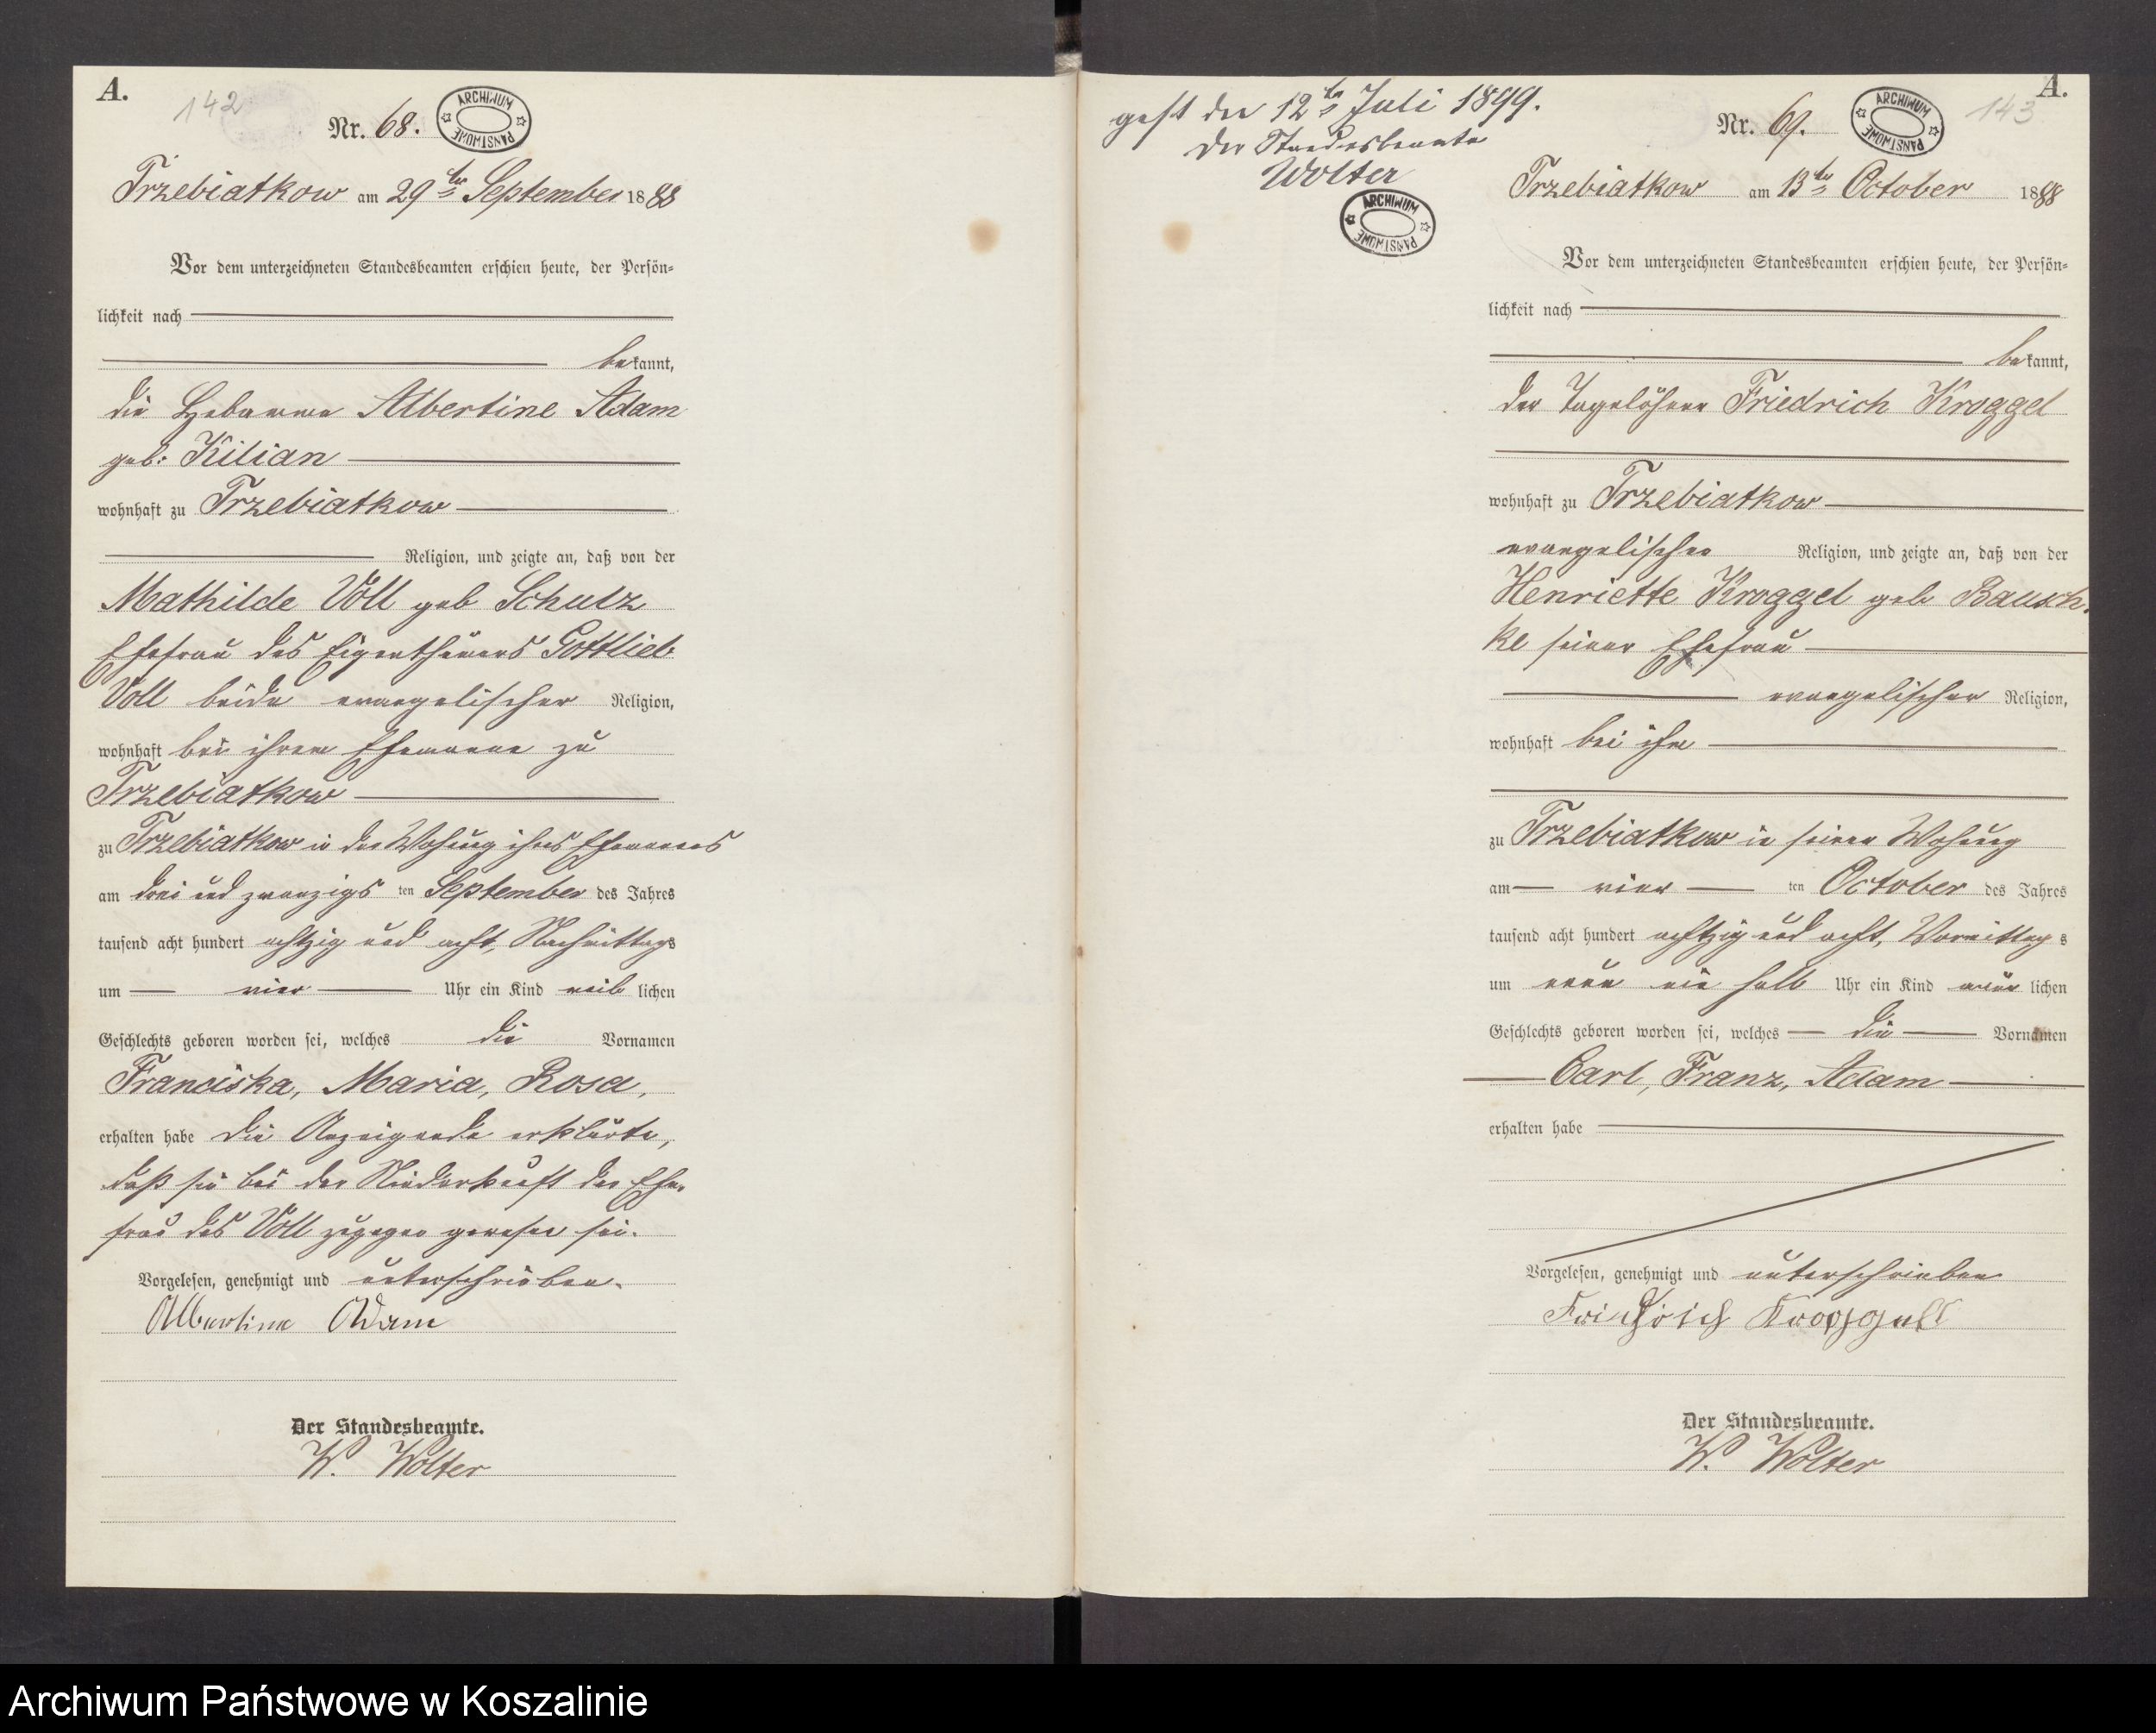 A.
142
Nr. 68.
ARCHIWUM PAŃSTWOWE
Trzebiatkow am 29ten September 1888
Vor dem unterzeichneten Standesbeamten erschien heute, der Persön-
lichkeit nach
bekannt,
die Hebamme Albertine Adam
geb: Kilian
wohnhaft zu Trzebiatkow
Religion, und zeigte an, daß von der
Mathilde Voll geb Schulz
Ehefrau des Eigenthümers Gottlieb
Voll beide evangelischer Religion,
wohnhaft bei ihrem Ehemanne zu
Trzebiatkow
zu Trzebiatkow in der Wohnung ihres Ehemannes
am drei und zwanzigsten September des Jahres
tausend acht hundert achtzig und acht, Nachmittags
um vier Uhr ein Kind weiblichen
Geschlechts geboren worden sei, welches die Vornamen
Franciska, Maria, Rosa,
erhalten habe Die Anzeigende erklärte,
daß sie bei der Niederkunft der Ehe-
frau des Voll zugegen gewesen sei.
Vorgelesen, genehmigt und unterschrieben.
Albertine Adam
Der Standesbeamte.
W. Wolter
gest den 12ten Juli 1899.
Der Standesbeamte
Wolter
ARCHIWUM PAŃSTWOWE
A.
143
Nr. 69.
ARCHIWUM PAŃSTWOWE
Trzebiatkow am 13ten October 1888
Vor dem unterzeichneten Standesbeamten erschien heute, der Persön-
lichkeit nach
bekannt,
der Tagelöhner Friedrich Kroggel
wohnhaft zu Trzebiatkow
evangelischer Religion, und zeigte an, daß von der
Henriette Kroggel geb Bausch-
ke seiner Ehefrau
evangelischer Religion,
wohnhaft bei ihm
zu Trzebiatkow in seiner Wohnung
am vier ten October des Jahres
tausend acht hundert achtzig und acht, Vormittags
um neun ein halb Uhr ein Kind männlichen
Geschlechts geboren worden sei, welches die Vornamen
Carl, Franz, Adam
erhalten habe
Vorgelesen, genehmigt und unterschrieben
Friedrich Kroggel
Der Standesbeamte.
W. Wolter
Archiwum Państwowe w Koszalinie